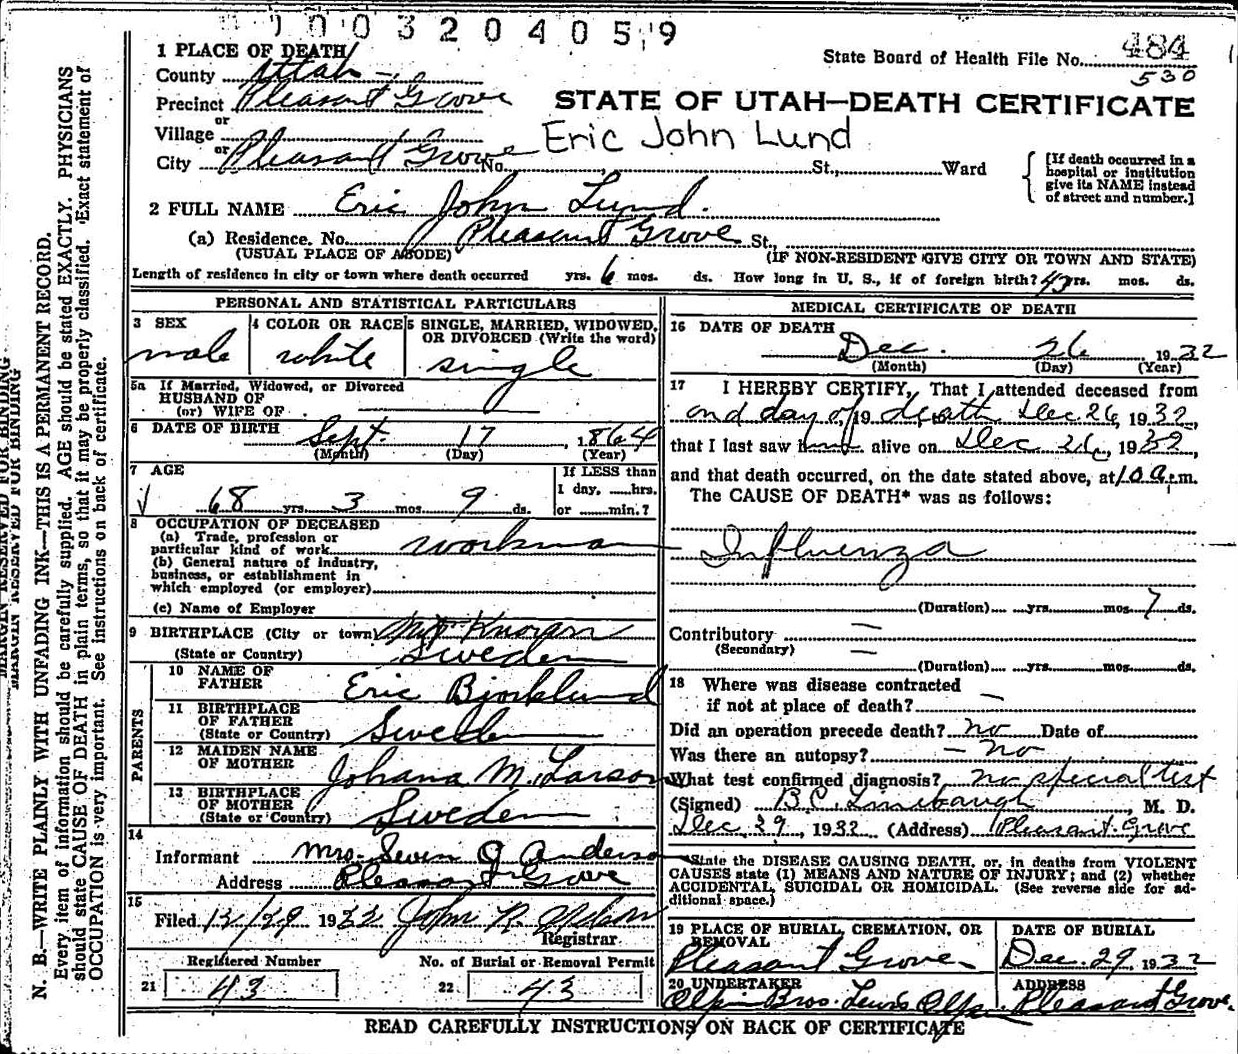 0 0 3 2 0 4 0 5 9
1 PLACE OF DEATH
State Board of Health File No. 484
530
County Utah
Precinct Pleasant Grove
STATE OF UTAH—DEATH CERTIFICATE
or
Village
Eric John Lund
or
City Pleasant Grove No. St., Ward
[If death occurred in a
hospital or institution
give its NAME instead
of street and number.]
2 FULL NAME Eric John Lund.
(a) Residence. No. Pleasant Grove St.,
(USUAL PLACE OF ABODE) (IF NON-RESIDENT GIVE CITY OR TOWN AND STATE)
Length of residence in city or town where death occurred yrs. 6 mos. ds. How long in U. S., if of foreign birth? yrs. mos. ds.
PERSONAL AND STATISTICAL PARTICULARS
3 SEX
male
4 COLOR OR RACE
white
5 SINGLE, MARRIED, WIDOWED,
OR DIVORCED (Write the word)
single
5a If Married, Widowed, or Divorced
HUSBAND OF
(or) WIFE OF
6 DATE OF BIRTH Sept. 17, 1864
(Month) (Day) (Year)
7 AGE
68 yrs. 3 mos. 9 ds.
If LESS than
1 day, ......hrs.
or ......min.?
8 OCCUPATION OF DECEASED
(a) Trade, profession or
particular kind of work workman
(b) General nature of industry,
business, or establishment in
which employed (or employer)
(c) Name of Employer
9 BIRTHPLACE (City or town)
(State or Country) Sweden
PARENTS
10 NAME OF
FATHER Eric Bjorklund
11 BIRTHPLACE
OF FATHER
(State or Country) Sweden
12 MAIDEN NAME
OF MOTHER Johana M. Larson
13 BIRTHPLACE
OF MOTHER
(State or Country) Sweden
14
Informant Mrs. Anderson
Address Pleasant Grove
15
Filed 12/29 1932 John R.
Registrar
Registered Number No. of Burial or Removal Permit
21 43 22 43
MEDICAL CERTIFICATE OF DEATH
16 DATE OF DEATH
Dec. 26, 1932
(Month) (Day) (Year)
17 I HEREBY CERTIFY, That I attended deceased from
and day of 19 death Dec 26, 1932,
that I last saw him alive on Dec 26, 1932,
and that death occurred, on the date stated above, at 10 a.m.
The CAUSE OF DEATH* was as follows:
Influenza
(Duration) yrs. mos. 7 ds.
Contributory —
(Secondary) —
(Duration) yrs. mos. ds.
18 Where was disease contracted
if not at place of death? —
Did an operation precede death? no Date of
Was there an autopsy? — no
What test confirmed diagnosis? no special test
(Signed) B.C. , M. D.
Dec 29, 1932 (Address) Pleasant Grove
State the DISEASE CAUSING DEATH, or, in deaths from VIOLENT
CAUSES state (1) MEANS AND NATURE OF INJURY; and (2) whether
ACCIDENTAL, SUICIDAL OR HOMICIDAL. (See reverse side for ad-
ditional space.)
19 PLACE OF BURIAL, CREMATION, OR
REMOVAL
Pleasant Grove
DATE OF BURIAL
Dec. 29, 1932
20 UNDERTAKER
Olpin Bros. Lewis Olpin
ADDRESS
Pleasant Grove
READ CAREFULLY INSTRUCTIONS ON BACK OF CERTIFICATE
MARGIN RESERVED FOR BINDING
MARGIN RESERVED FOR BINDING
N. B.—WRITE PLAINLY WITH UNFADING INK—THIS IS A PERMANENT RECORD.
Every item of information should be carefully supplied. AGE should be stated EXACTLY. PHYSICIANS
should state CAUSE OF DEATH in plain terms, so that it may be properly classified. Exact statement of
OCCUPATION is very important. See instructions on back of certificate.